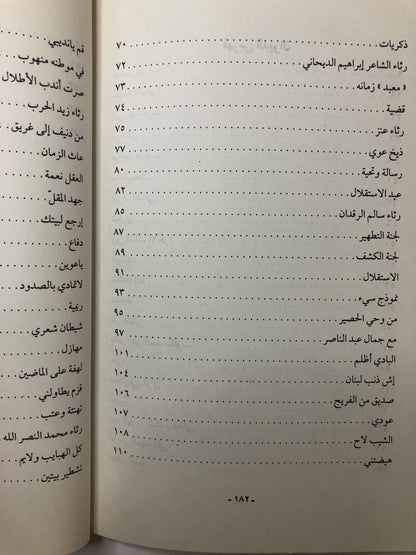 ذكريات ٧٠
رثاء الشاعر إبراهيم الديحاني ٧٢
« معبد » زمانه ٧٣
قضية ٧٤
رثاء عنز ٧٥
ذيخ عوي ٧٧
رسالة وتحية ٨٠
عيد الاستقلال ٨٢
رثاء سالم الرقدان ٨٥
لجنة التطهير ٨٧
لجنة الكشف ٨٩
الاستقلال ٩١
نموذج سيء ٩٣
من وحي الحصير ٩٥
مع جمال عبد الناصر ٩٧
البادي أظلم ١٠١
إش ذنب لبنان ١٠٤
صديق من الفريج ١٠٦
عودي ١٠٧
الشيب لاح ١٠٨
هيضتني ١١٠
- ١٨٢ -
قم يانديبي
في موطنه منهوب
صرت أندب الأطلال
رثاء زيد الحرب
من دنيف إلى غريق
عاث الزمان
العقل نعمة
جهد المقلّ
إرجع لبيتك
دفاع
ياعوين
لاتمادي بالصدود
ريمية
شيطان شعري
مهازل
لهفة على الماضين
قزم يطاولني
تهنئة وعتب
رثاء محمد النصر الله
كل الهبايب ولايم
تشطير بيتين